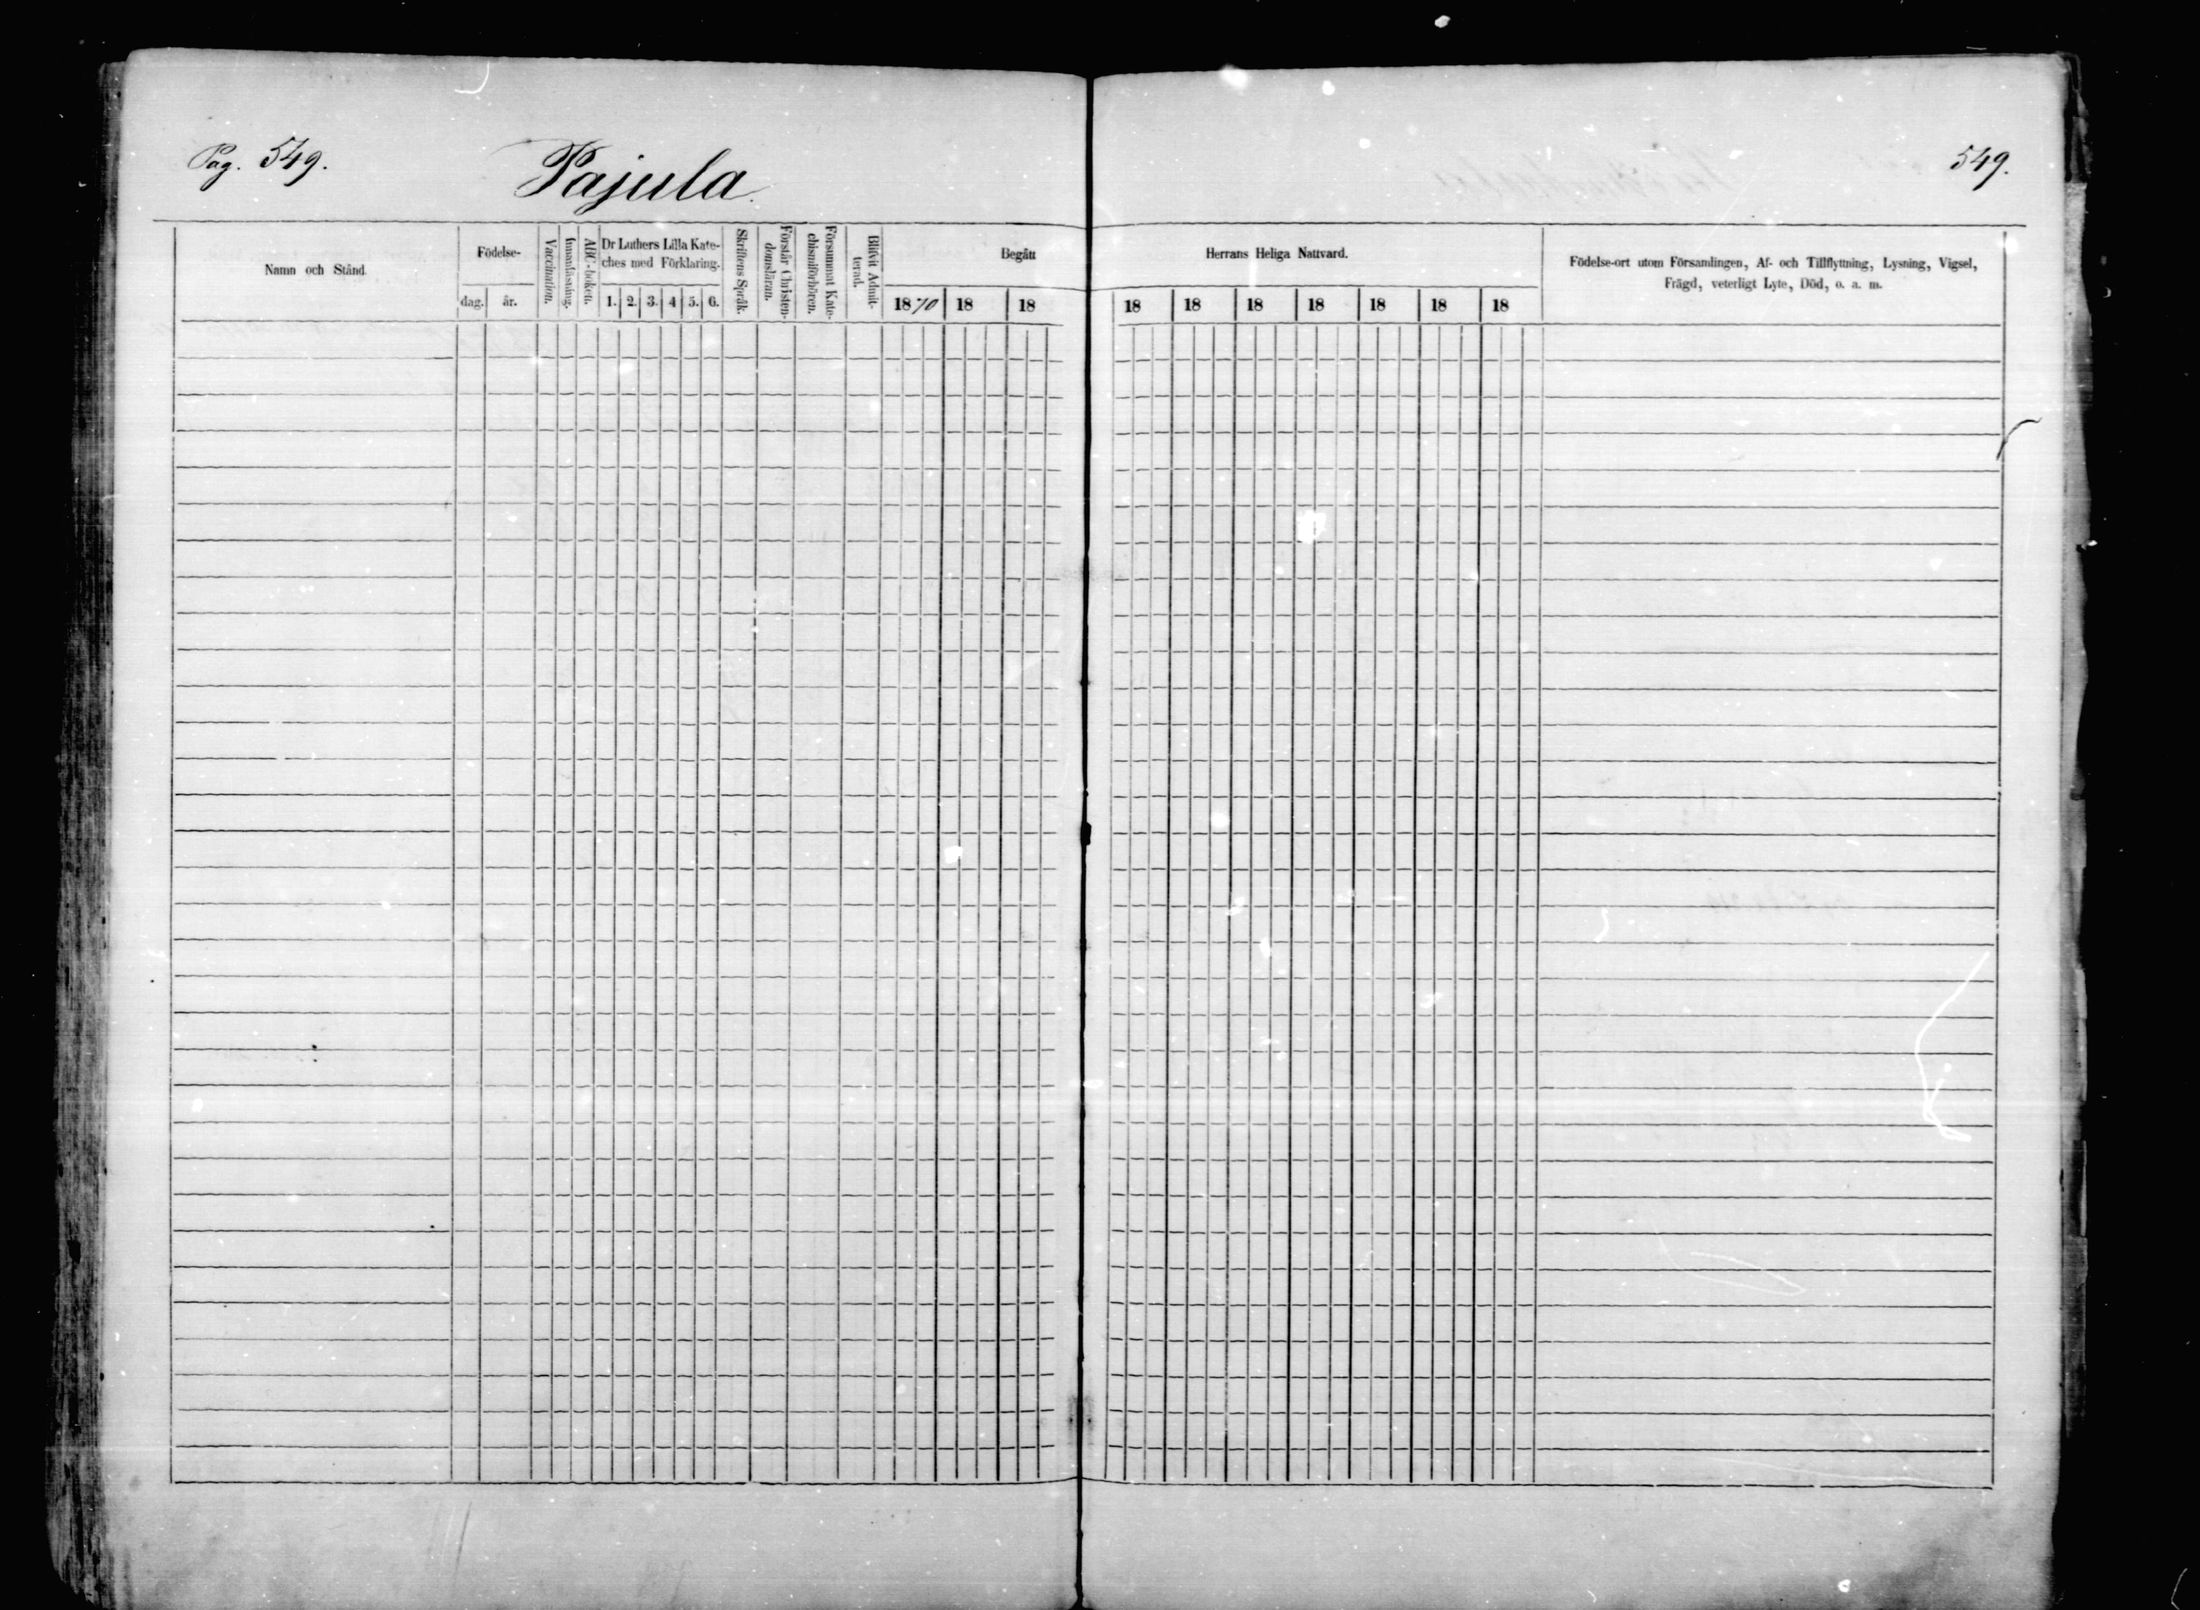 Pag. 549.
Pajula.
549.
Namn och Stånd.
Födelse-
dag.
år.
Vaccination.
Innanläsning.
ABC-boken.
Dr Luthers Lilla Kate-
ches med Förklaring.
1. 2. 3. 4 5. 6.
Skriftens Språk.
Förstår Christen-
domsläran.
Försummat Kate-
chismiförhören.
Blifvit Admit-
terad.
Begått
Herrans Heliga Nattvard.
1870 18 18
18 18 18 18 18 18 18
Födelse-ort utom Församlingen, Af- och Tillflyttning, Lysning, Vigsel,
Frägd, veterligt Lyte, Död, o. a. m.